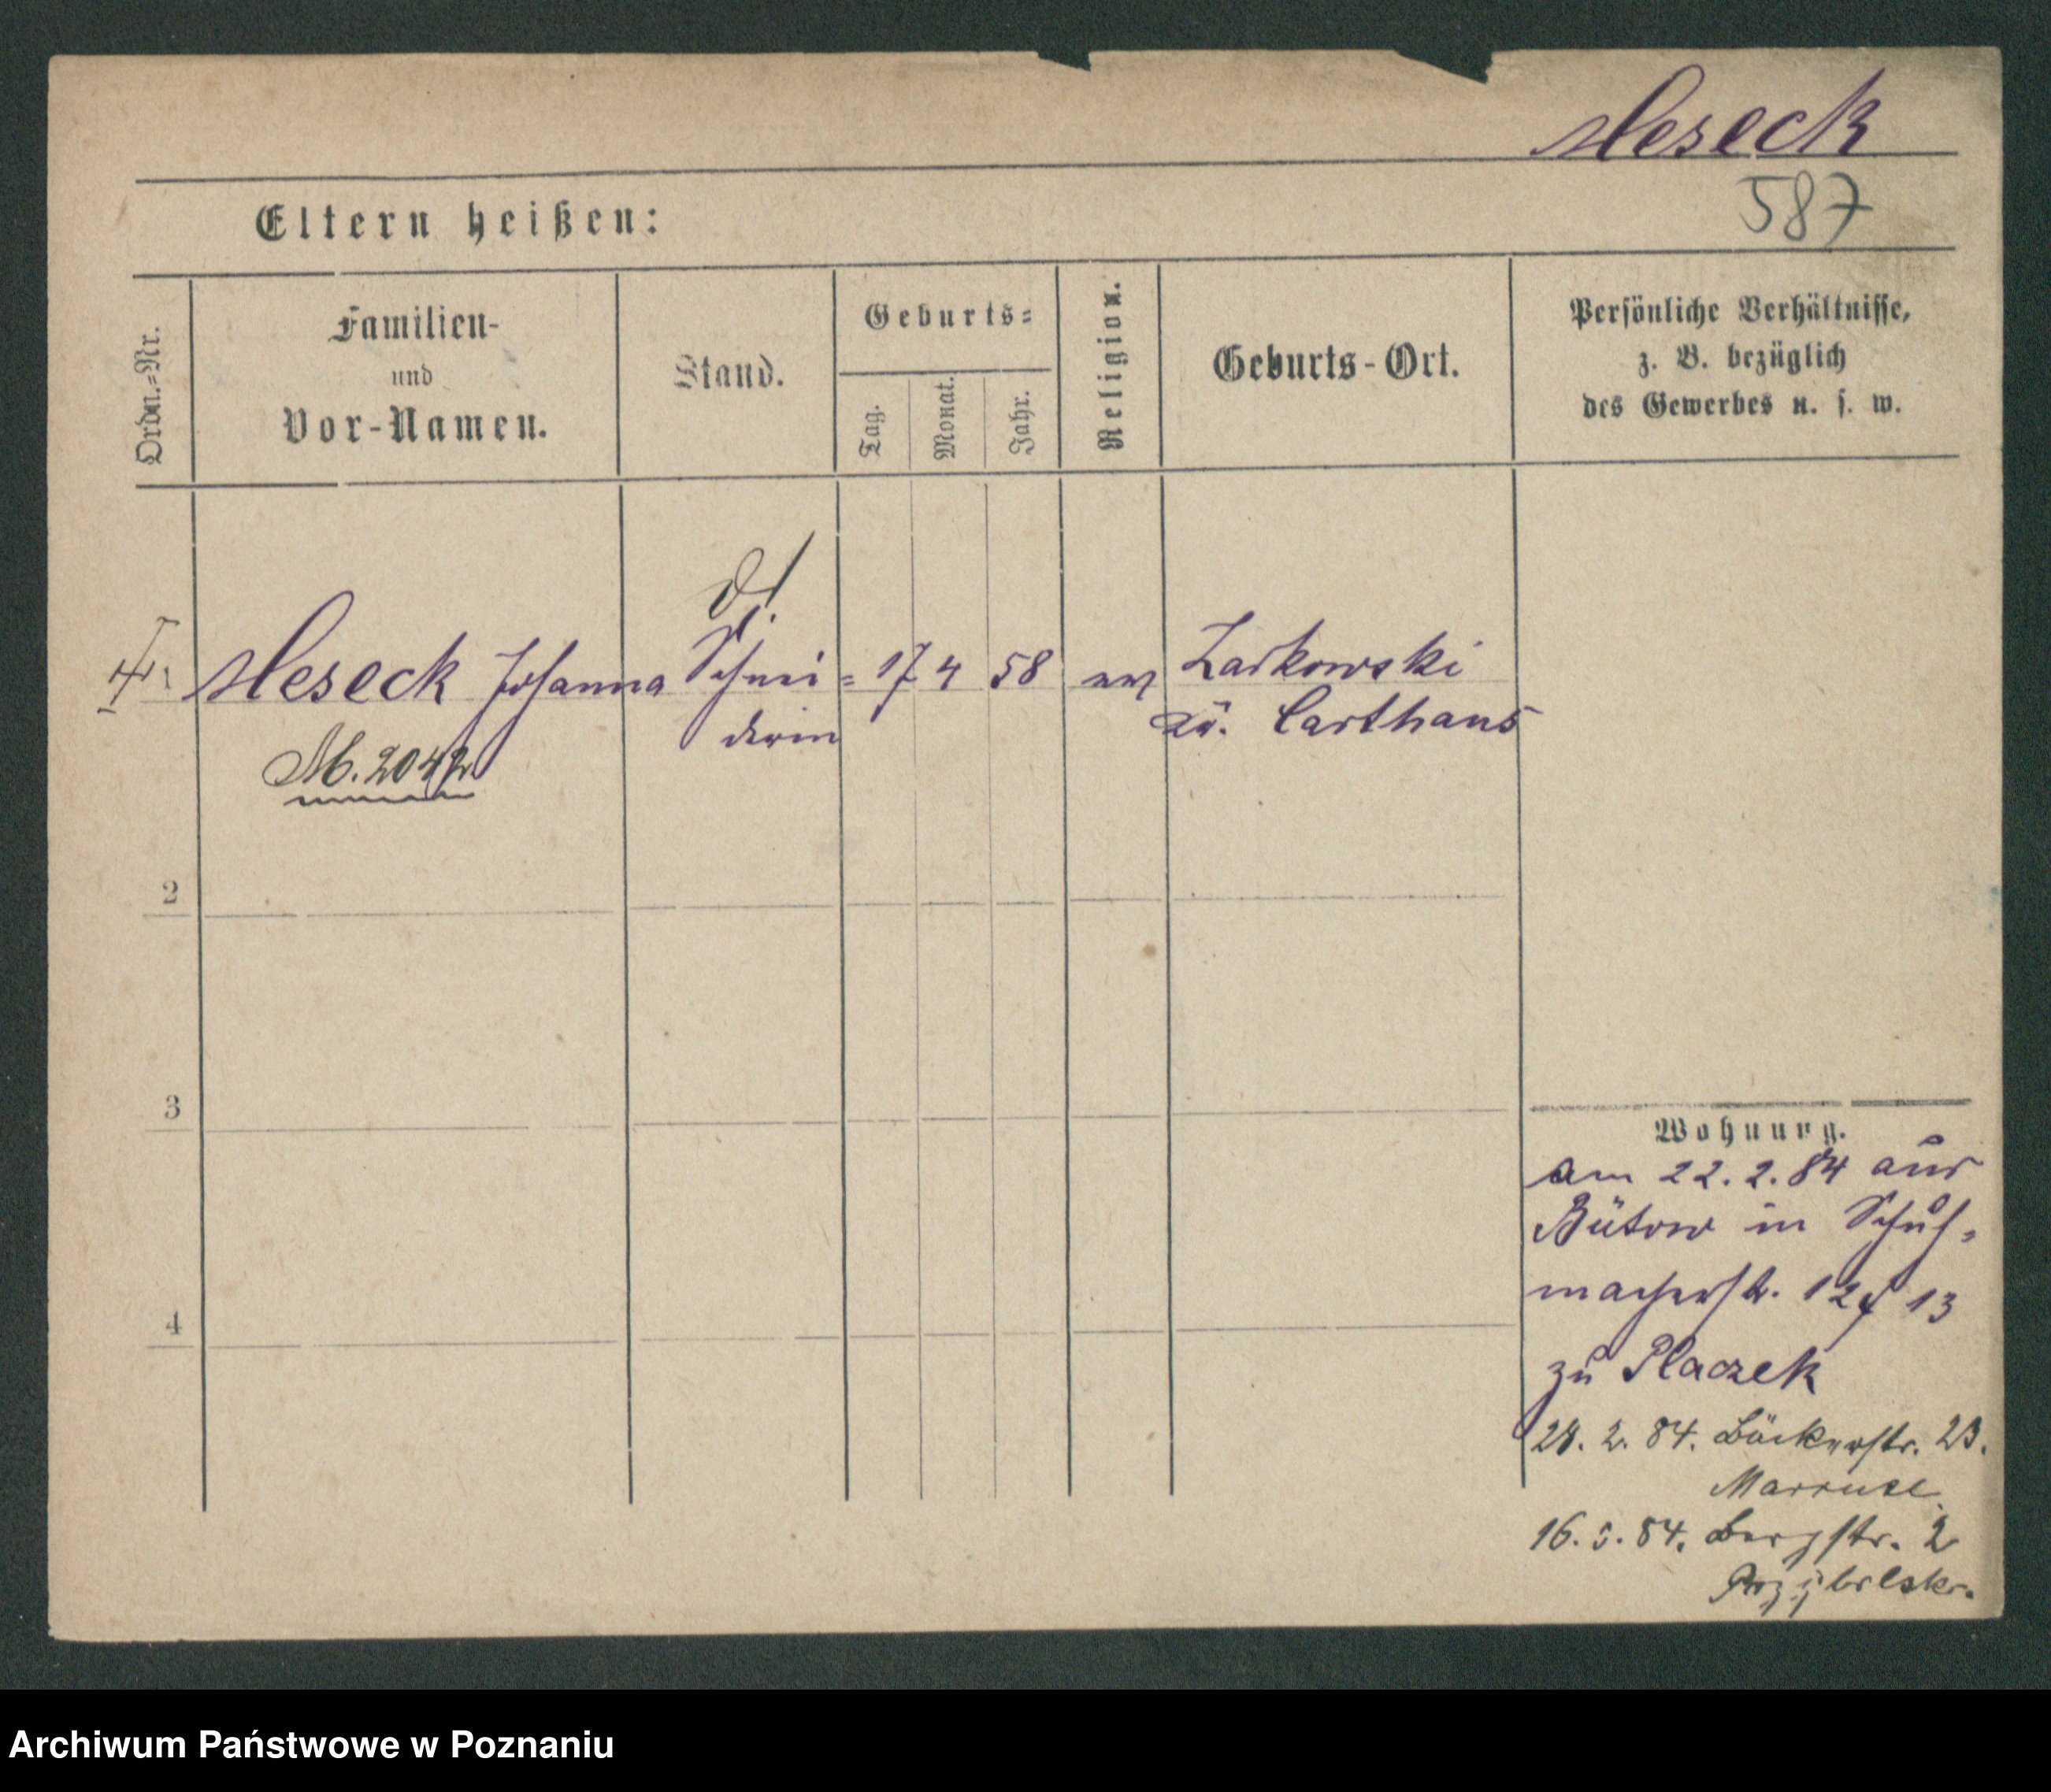 Meseck
587
Eltern heißen:
Ordn.-Nr.
Familien-
und
Vor-Namen.
Stand.
Geburts-
Tag.
Monat.
Jahr.
Religion.
Geburts-Ort.
Persönliche Verhältnisse,
z. B. bezüglich
des Gewerbes u. s. w.
1 Meseck Johanna Schnei- 17 4 58 ev Zarkowski
derin Kr. Carthaus
M. 2042
2
3
4
Wohnung.
am 22. 2. 84 aus
Bütow in Schuh-
macherstr. 12/13
zu Placzek
28. 2. 84. Bäckerstr. 23.
16. 5. 84. Bergstr. 2
Archiwum Państwowe w Poznaniu